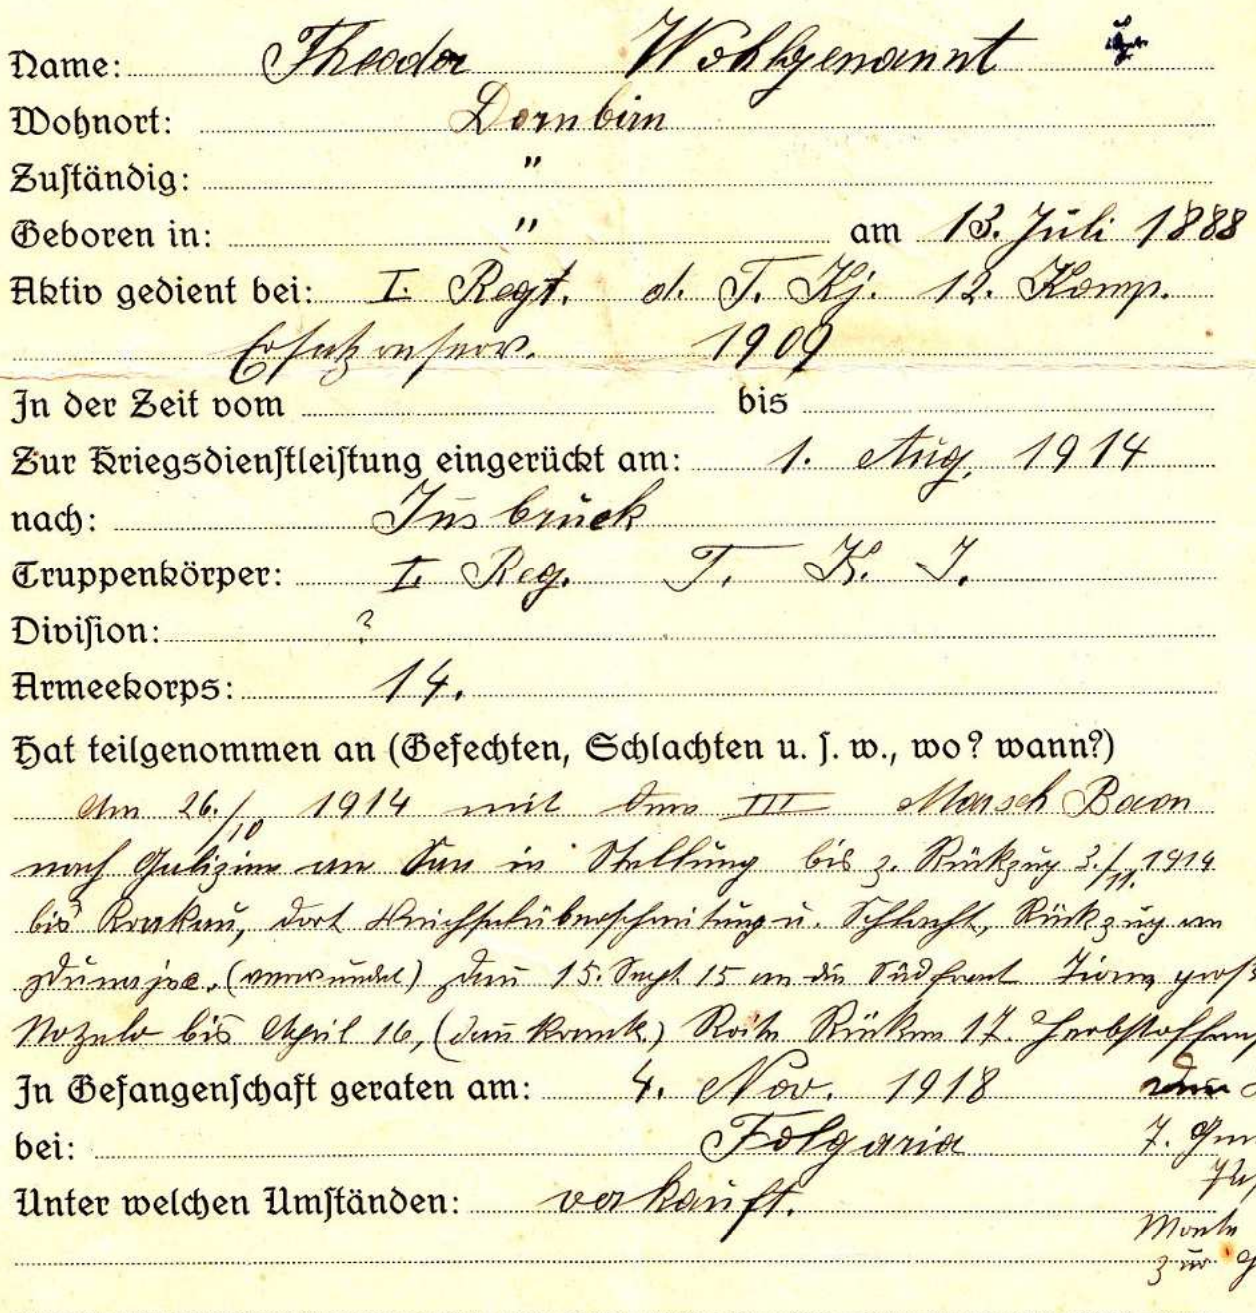 Name: Theodor Wohlgenannt
Wohnort: Dornbirn
Zuständig: "
Geboren in: " am 13. Juli 1888
Aktiv gedient bei: I. Regt. d. T. Kj. 12. Komp.
Ersatzreserv. 1909
In der Zeit vom bis
Zur Kriegsdienstleistung eingerückt am: 1. Aug. 1914
nach: Insbruck
Truppenkörper: I. Reg. T. K. J.
Division: ?
Armeekorps: 14.
Hat teilgenommen an (Gefechten, Schlachten u. s. w., wo? wann?)
Am 26./10 1914 mit dem III Marsch Baon
nach Galizien am San in Stellung bis z. Rückzug 3./11. 1914
bis Krakau, dort Weichselüberschreitung u. Schlacht, Rückzug an
Dunajec. (verwundet) dann 15. Sept. 15 an die Südfront
bis April 16, (dann krank) Rückzug 17.
In Gefangenschaft geraten am: 4. Nov. 1918
bei: Folgaria 7.
Unter welchen Umständen: verkauft.
Monte
zur